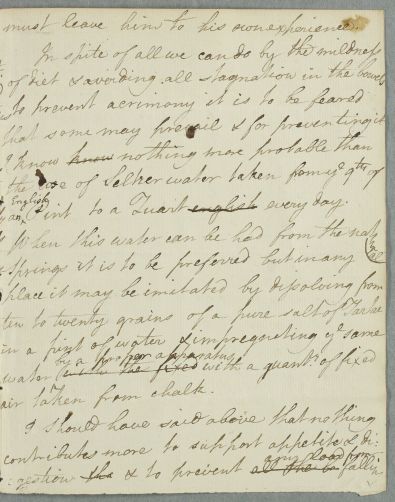 must leave him to his own experience.
In spite of all we can do by the mildness
of diet & avoiding all stagnation in the bowels
to prevent acrimony it is to be feared
that some may prevail & for preventing it
I know know nothing more probable than
the use of Selker water taken from ye qty of
an English Pint to a Quart english every day.
When this water can be had from the natural
Springs it is to be preferred but in any
place it may be imitated by dissolving from
ten to twenty grains of a pure salt of Tartar
in a pint of water & impregnating ye same
by a proper apparatus
water with the fixed with a quanty of fixed
air taken from chalk.
I should have said above that nothing
contributes more to support appetite & di:
any load from
:gestion tha & to prevent all the ba fallin